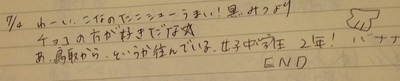 7/4 わーい、こなのたこシューうまい!黒みつより
チョコの方が好きだな
あ、鳥取から、というか住んでいる、女子中学生 2年! バナナ
END